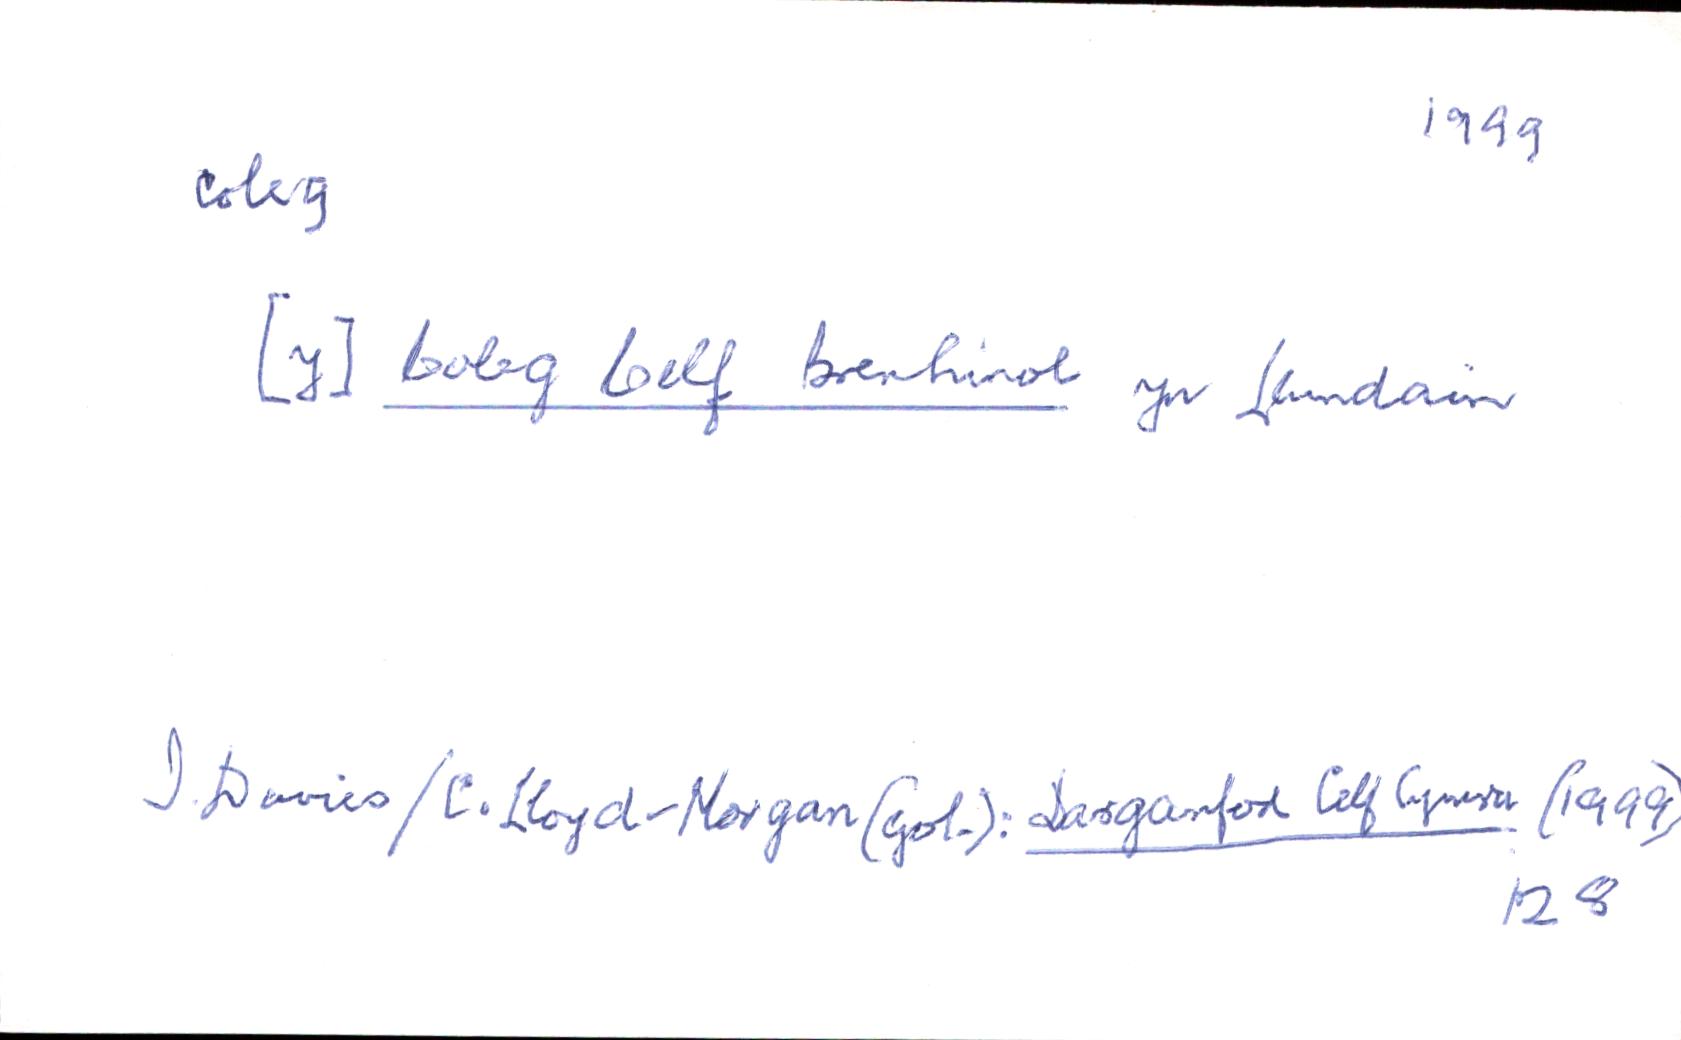 1999
coleg
[y] Coleg Celf brenhinol yn Llundain
I. Davies/C. Lloyd-Morgan (gol.): Darganfod Celf Cymru (1999)
128